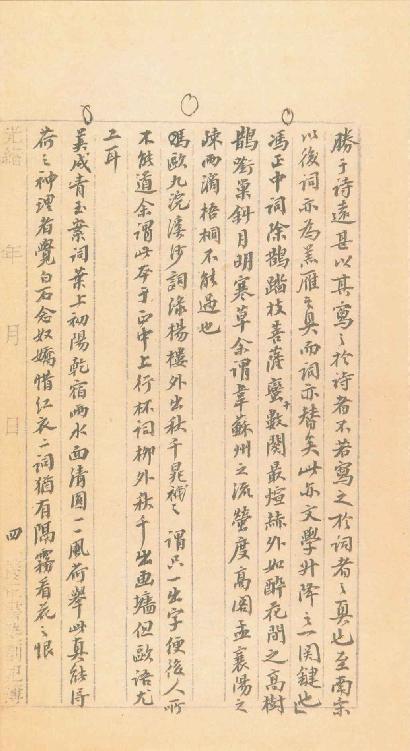 勝于詩遠甚以其寫之於詩者不若寫之於詞者之真也至南宋
以後詞亦為羔雁之具而詞亦替矣此亦文學升降之一関鍵也
馮正中詞除鵲踏枝菩薩蠻十數闋最煊赫外如醉花間之高樹
鵲銜巢斜月明寒草余謂韋蘇州之流螢度高閣孟襄陽之
疎雨滴梧桐不能過也
歐九浣溪沙詞綠楊樓外出秋千晁補之謂只一出字便後人所
不能道余謂此本于正中上行杯詞柳外秋千出畫墻但歐語尤
工耳
美成青玉案詞葉上初陽乾宿雨水面清圓一一風荷舉此真能得
荷之神理者覺白石念奴嬌惜紅衣二詞猶有隔霧看花之恨
光緒 年 月 日 四